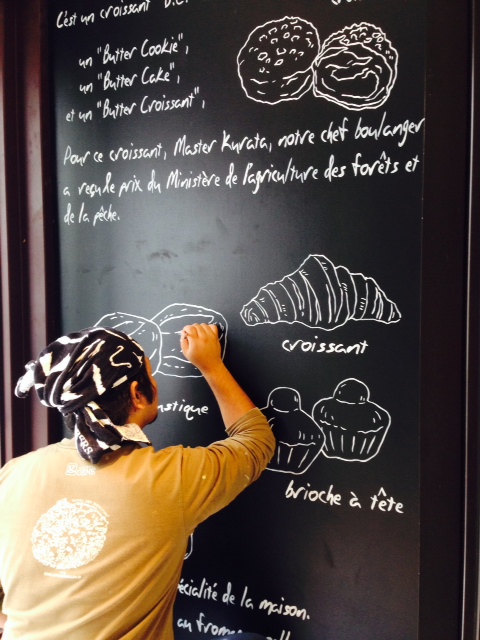 C'est un croissant
un "Butter Cookie",
un "Butter Cake",
et un "Butter Croissant",
Pour ce croissant, Master Kurata, notre chef boulanger
a reçu le prix du Ministère de l'agriculture des forêts et
de la pêche.
croissant
stique
brioche à tête
écialité de la maison.
au from